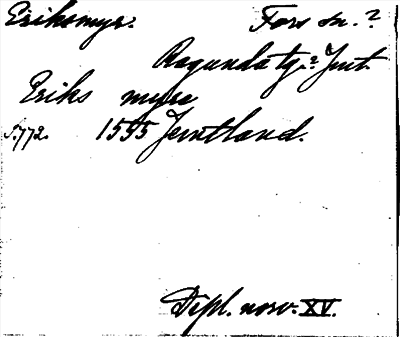 Eriksmyr. Fors sn.?
Ragunda tg.? Jmt.
Eriks myre
S. 772. 1595 Jemtland.
Dipl. norv. XV.